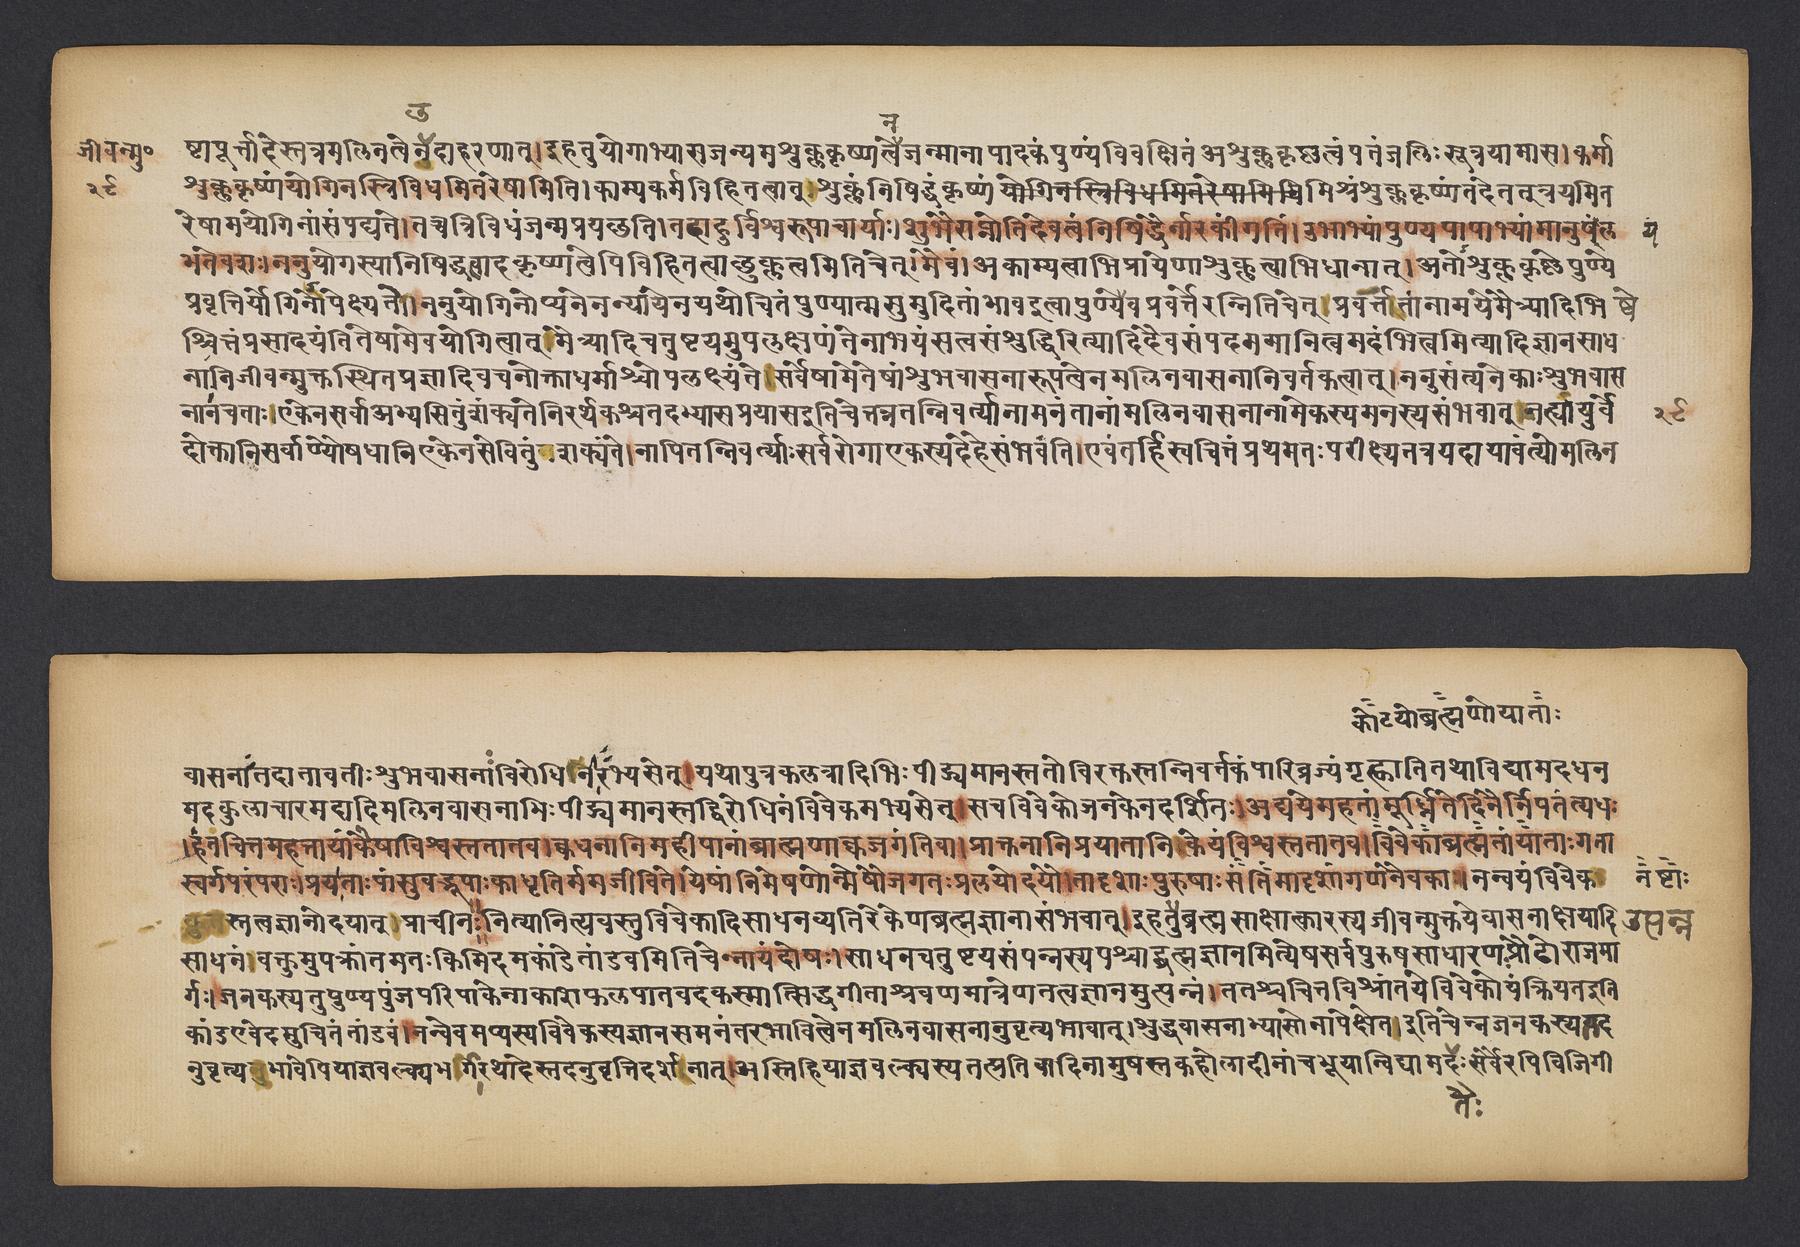 तु
न
जीवन्मु०
ष्टापूर्त्तादेस्तत्रमलिनत्वेनदाहरणात्।इहतुयोगाभ्यासजन्यमशुक्लकृष्णत्वेजन्मानापादकंपुण्यंविवक्षितंअशुक्लकृष्णत्वंपतंजलिःसूत्रयामास।कर्मा
२९
शुक्लकृष्णंयोगिनस्त्रिविधमितरेषामिति।काम्यकर्मविहितत्वात्शुक्लंनिषिद्धंकृष्णंयोगिनस्त्रिविधमितरेषामितिमिश्रंशुक्लकृष्णंतदेतत्त्रयमित
रेषामयोगिनांसंपद्यते।तच्चत्रिविधंजन्मप्रयछति।तदाहुर्विश्वरूपाचार्याः।शुभैराप्नोतिदेवत्वंनिषिद्धैर्नारकींगतिं।उभाभ्यांपुण्यपापाभ्यांमानुषंल
भतेवशः।ननुयोगस्यानिषिद्धत्वादकृष्णत्वेपिविहितत्वाछुक्लत्वमितिचेत्।मैवं।अकाम्यत्वाभिप्रायेणाशुक्लत्वाभिधानात्।अतोशुक्लकृष्णेपुण्ये
प्रवृत्तिर्योगिनोपेक्ष्यते।ननुयोगिनोप्यनेनन्यायेनयथोचितंपुण्यात्मसुमुदितांभावइत्वापुण्येवप्रवर्त्तेरन्नितिचेत्प्रवर्त्ततांनामयेमैत्र्यादिभि
श्चित्तंप्रसादयंतितेषामेवयोगित्वात्।मैत्र्यादिचतुष्टयमुपलक्षणंतेनाभयंसत्वसंशुद्धिरित्यादिदैवसंपदममानित्वमदंभित्वमित्यादिज्ञानसाध
नानिजीवन्मुक्तस्थितप्रज्ञादिवचनोक्ताधर्माश्चोपलक्ष्यंते।सर्वेषामेतेषांशुभवासनारूपत्वेनमलिनवासनानिवर्तकत्वात्।ननुसंत्यनेकाःशुभवास
नानचताःएकेनसर्वाअभ्यसितुंशक्यंतेनिरर्थकश्चतदभ्यासप्रयासइतिचेत्तन्नतन्निवर्त्यानामनंतानांमलिनवासनानामेकस्यमनस्यसंभवात्नह्यायुर्वे
२९
दोक्तानिसर्वाण्योषधानिएकेनसेवितुंशक्यंते।नापितन्निवर्त्याःसर्वरोगाएकस्यदेहेसंभवंति।एवंतर्हिस्वचित्तंप्रथमतःपरीक्ष्यतत्रयदायावंत्योमलिन
कोटयोब्रह्मणोयाताः
वासनातदातावतीःशुभवासनाविरोधिनीरभ्यसेत्।यथापुत्रकलत्रादिभिःपीड्यमानस्ततोविरक्तस्तन्निवर्तकंपारिव्रज्यंगृह्णातितथाविद्यामदधन
मदकुलाचारमदादिमलिनवासनाभिःपीड्यमानस्तद्विरोधिनंविवेकमभ्यसेत्।सचविवेकोजनकेनदर्शितः।अद्ययेमहतांमूर्ध्नितेदिनैर्निपतंत्यधः
हंतचित्तमहत्तायांकैषाविश्वस्ततातव।क्वधनानिमहीपानांब्रह्मणःक्वजगंतिवा।प्राक्तनानिप्रयातानिकेयंविश्वस्ततातव।विवेकाब्रह्मतांयाताःगता
स्वर्गपरंपराः।प्रयाताःपांसुवद्भूपाःकाधृतिर्ममजीविते।येषांनिमेषणोन्मेषोजगतःप्रलयोदयौ।तादृशाःपुरुषाःसंतिमादृशांगणनैवका।नन्वयंविवेक
नष्टाः
स्तत्वज्ञानोदयात्प्राचीनःनित्यानित्यवस्तुविवेकादिसाधनव्यतिरेकेणब्रह्मज्ञानासंभवात्।इहतुब्रह्मसाक्षात्कारस्यजीवन्मुक्तयेवासनाक्षयादि
उत्पन्न
साधनंवक्तुमुपक्रांतमतःकिमिदमकांडेतांडवमितिचेन्नायंदोषः।साधनचतुष्टयसंपन्नस्यपश्चाद्ब्रह्मज्ञानमित्येषसर्वपुरुषसाधारणःप्रौढोराजमा
र्गः।जनकस्यतुपुण्यपुंजपरिपाकेनाकाशफलपातवदकस्मात्सिद्धगीताश्रवणमात्रेणतत्वज्ञानमुत्पन्नं।ततश्चचित्तविश्रांतयेविवेकोयंक्रियतइति
कांडएवेदमुचितंतांडवं।नन्वेवमप्यस्यविवेकस्यज्ञानसमनंतरभावित्वेनमलिनवासनानुवृत्यभावात्।शुद्धवासनाभ्यासोनापेक्षेत।इतिचेन्नजनकस्यतद
नुवृत्यभावेपियाज्ञवल्क्यभगीरथादेस्तदनुवृत्तिदर्शनात्।अस्तिहियाज्ञवल्क्यस्यतत्प्रतिवादिनामुषस्तकहोलादीनांचभूयान्विद्यामदःसर्वैरपिविजिगी
तैः